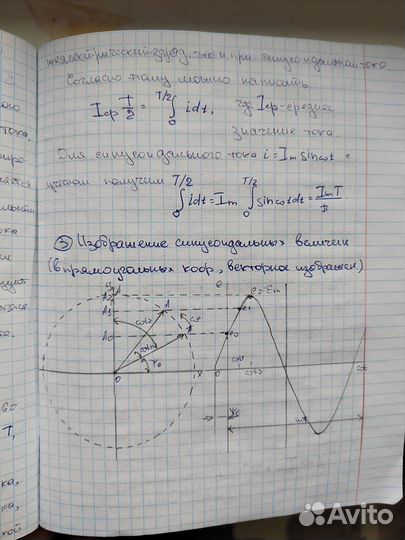 электрический заряд, что и при синусоидальном токе
Согласно этому можно написать
Iср T/2 = ∫₀^(T/2) idt, где Iср-среднее
значение тока.
Для синусоидального тока i = Im sinωt с
учетом получим
∫₀^(T/2) idt = Im ∫₀^(T/2) sinωtdt = ImT/π.
③ Изображение синусоидальных величин
(в прямоугольных коор., векторное изображен)
y
A
e
A2
A1
A
e2=Em
e1
ωt2
ω
A0
A
e0
ωt1
ωt1
ψe
ωt2
ωt
O
x
ψe
ωt
ого
тока,
Т,
ка,
ка,
кой
Avito